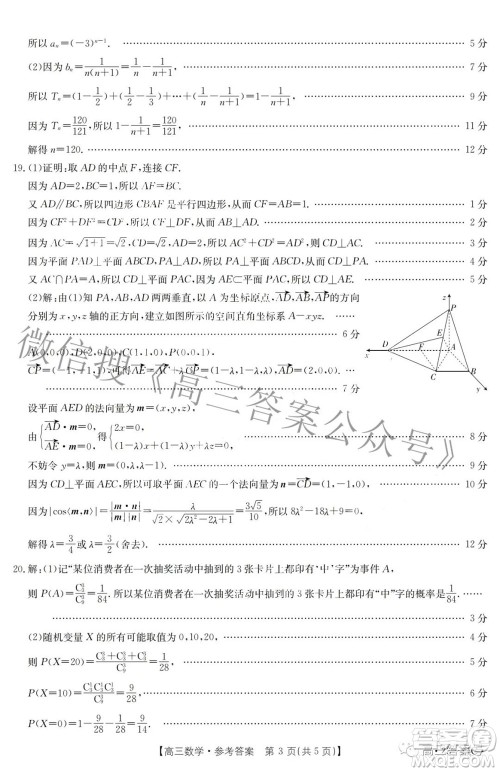 所以 aₙ=(-3)ⁿ⁻¹. 5分
(2)因为 bₙ=1/(n(n+1))=1/n-1/(n+1), 7分
所以 Tₙ=(1-1/2)+(1/2-1/3)+…+(1/n-1/(n+1))=1-1/(n+1). 9分
因为 Tₙ=120/121,所以 1-1/(n+1)=120/121, 11分
解得 n=120. 12分
19. (1)证明:取 AD 的中点 F,连接 CF.
因为 AD=2,BC=1,所以 AF=BC.
又 AD∥BC,所以四边形 CBAF 是平行四边形,从而 CF=AB=1. 1分
因为 CF²+DF²=CD²,所以 CF⊥DF,从而 AB⊥AD. 2分
因为 AC=√(1+1)=√2,CD=√2,所以 AC²+CD²=AD²,所以 CD⊥AC. 3分
因为平面 PAD⊥平面 ABCD,PA⊥AD,所以 PA⊥平面 ABCD,所以 PA⊥CD. 4分
又 AC∩PA=A,所以 CD⊥平面 PAC,因为 AE⊂平面 PAC,所以 CD⊥AE. 5分
(2)解:由(1)知 PA,AB,AD 两两垂直,以 A 为坐标原点,AD,AB,AP的方向
分别为 x,y,z 轴的正方向,建立如图所示的空间直角坐标系 A-xyz.
6分
A(0,0,0),D(2,0,0),C(1,1,0),P(0,0,1),
CP=(-1,-1,1),可得AE=(1-λ,1-λ,λ),AD=(2,0,0).
7分
z
P
E
D
A
x
C
B
y
设平面 AED 的法向量为 m=(x,y,z),
由{AD·m=0, AE·m=0,得{2x=0, (1-λ)x+(1-λ)y+λz=0, 8分
不妨令 y=λ,则 m=(0,λ,λ-1). 9分
因为 CD⊥平面 AEC,所以可取平面 AEC 的一个法向量为 n=CD=(1,-1,0), 10分
因为|cos⟨m,n⟩|=|m·n|/(|m||n|)=λ/(√2×√(2λ²-2λ+1))=3√5/10,所以 8λ²-18λ+9=0,
解得 λ=3/4或 λ=3/2(舍去). 12分
20. 解:(1)记“某位消费者在一次抽奖活动中抽到的 3 张卡片上都印有‘中’字”为事件 A,
则 P(A)=C₃³/C₉³=1/84.所以某位消费者在一次抽奖活动中抽到的 3 张卡片上都印有“中”字的概率是1/84. 3分
(2)随机变量 X 的所有可能取值为 0,10,20, 4分
则 P(X=20)=(C₃³+C₃³+C₃³)/C₉³=1/28, 5分
P(X=0)=1-9/28-1/28=9/14. 7分
【高三数学·参考答案 第 3 页(共 5 页)】
微信搜《高三答案公众号》